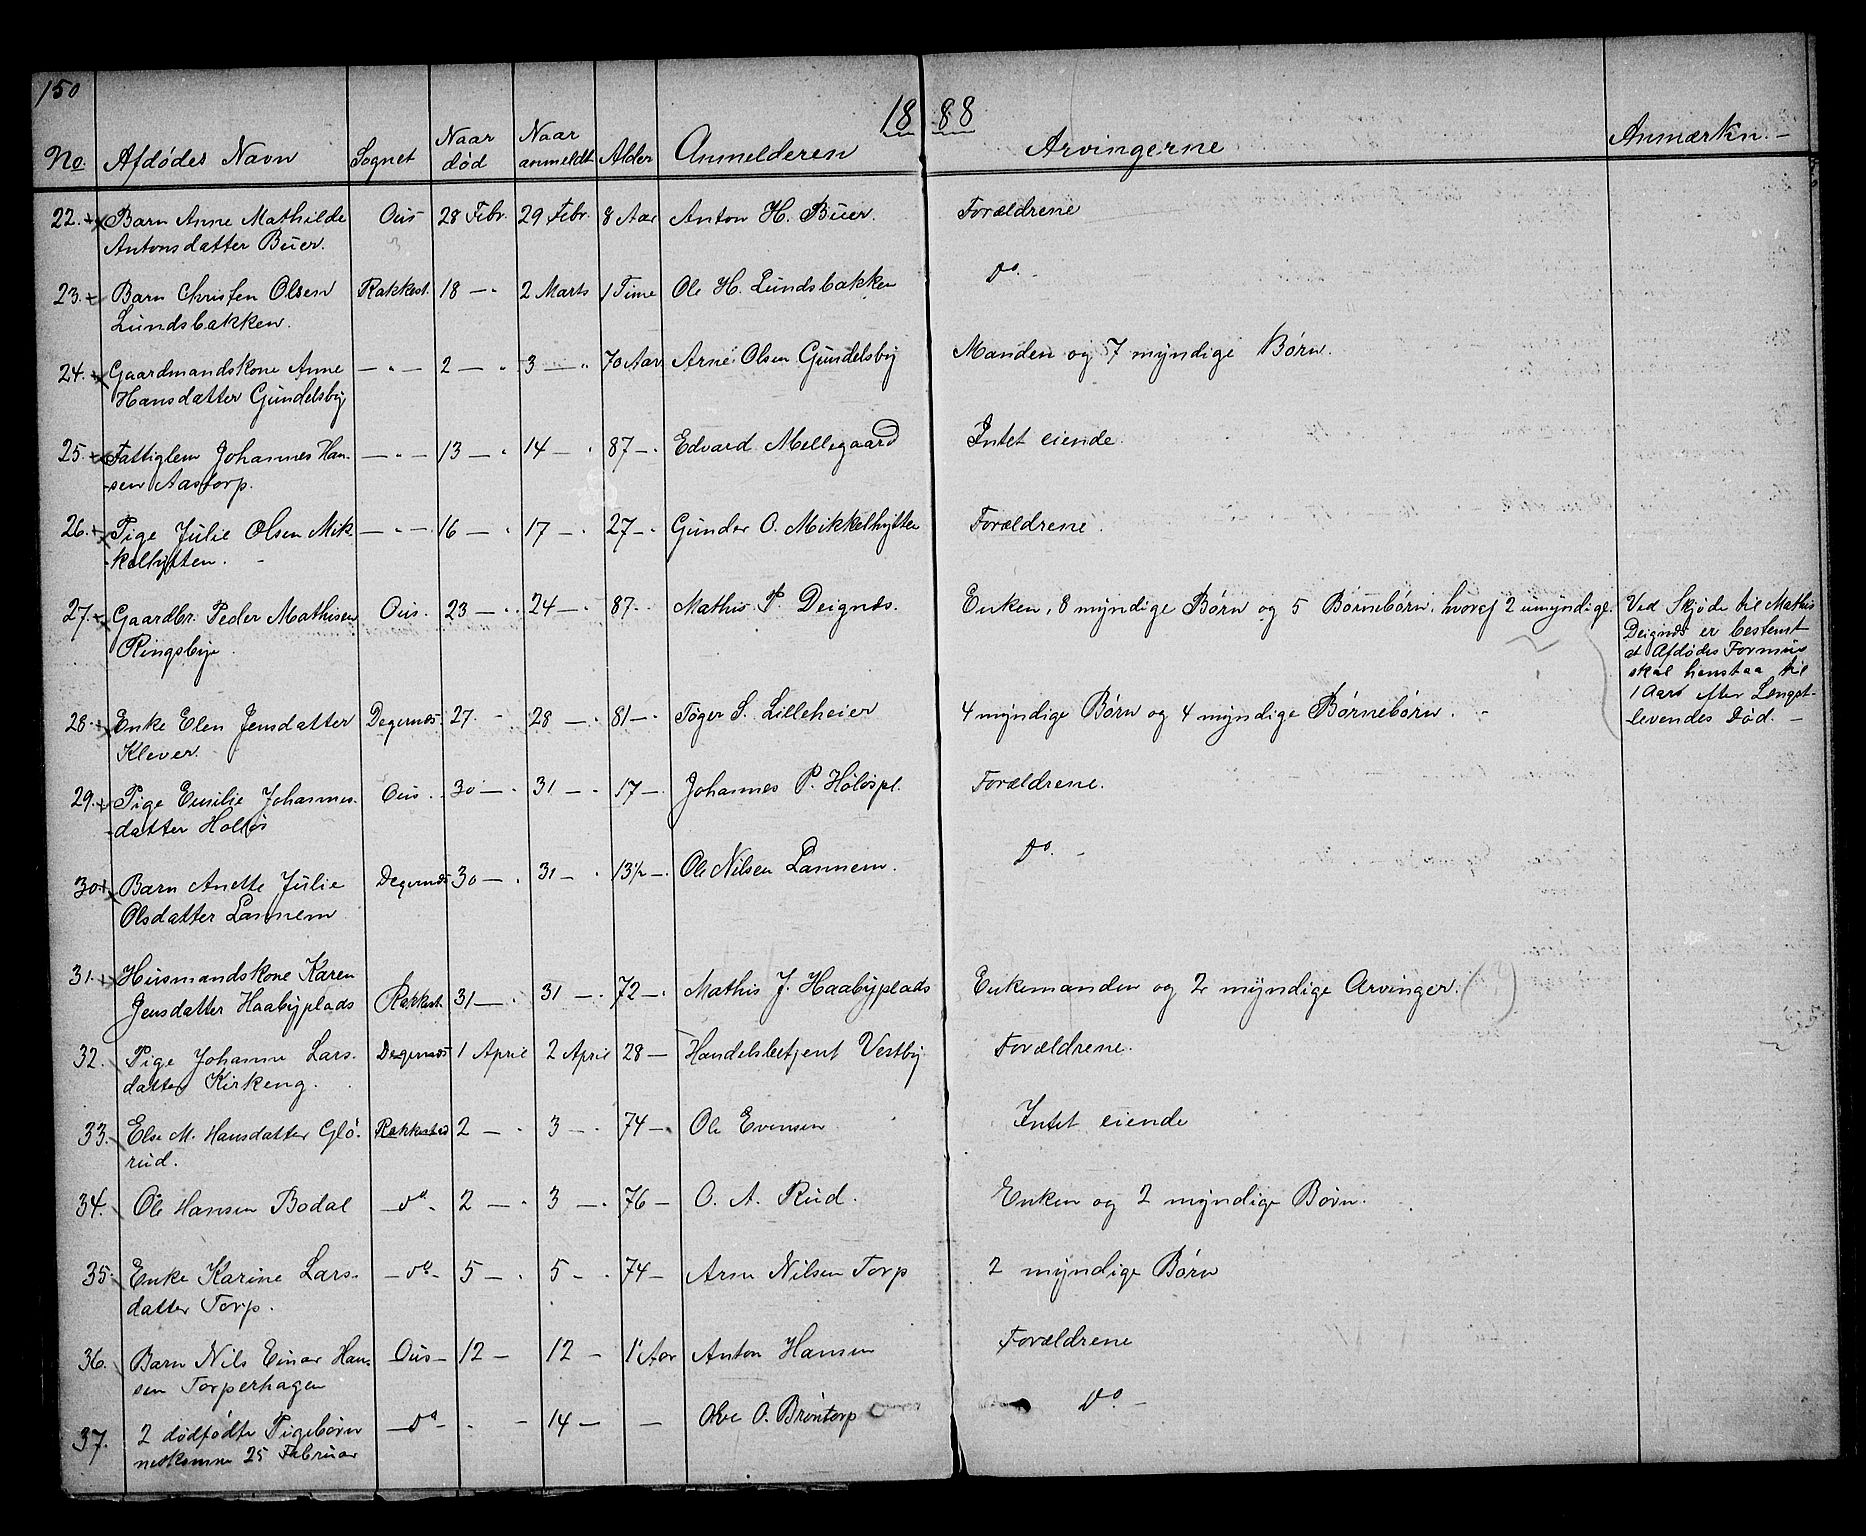 150
1888
No. Afdödes Navn Sognet Naar död Naar anmeldt Alder Anmelderen Arvingerne Anmærkn. –
22. Barn Anne Mathilde Ous 28 Febr. 29 Febr. 8 Aar Anton H. Buer. Forældrene
Antonsdatter Buer.
23. Barn Christen Olsen Rakkest. 18 — 2 Marts 1 Time Ole H. Lundsbakken Do. -
Lundsbakken.
24. Gaardmandskone Anne — " — 2 — 3 — 70 Aar Arne Olsen Gundelsby Manden og 7 myndige Börn.
Hansdatter Gundelsby
25. Fattiglem Johannes Han- — " — 13 — 14 — 87 — Edvard Mellegaard Intet eiende.
-sen Aastorp.
26. Pige Julie Olsen Mik- — " — 16 — 17 — 27 — Gunder O. Mikkelhytten Forældrene.
-kelhytten.
27. Gaardbr. Peder Mathisen Ous. 23 — 24 — 87 - Mathis P. Deignæs. Enken, 8 myndige Börn og 5 Börnebörn, hvoraf 2 umyndige. Ved Skjöde til Mathis
Ringsbye Deignæs er bestemt
at Afdödes Formue
skal henstaa til
1 Aar efter Længst-
-levendes Död. –
28. Enke Elen Jensdatter Degernæs 27. - 28 — 81 — Töger S. Lilleheier 4 myndige Börn og 4 myndige Börnebörn.
Klever.
29. Pige Emilie Johannes- Ous 30 — 31 — 17 — Johannes P. Hölöspl. Forældrene.
-datter Hollös
30. Barn Anette Julie Degernæs 30 — 31 — 13½ — Ole Nilsen Lannem. Do. -
Olsdatter Lannem
31. Husmandskone Karen
Jensdatter Haabyplads Rakkest. 31 — 31 — 72 — Mathis J. Haabyplads Enkemanden og 2 myndige Arvinger. (?)
32. Pige Johanne Lars- Degernæs 1 April 2 April 28 — Handelsbetjent Vestby Forældrene.
datter Kirkeng.
33. Else M. Hansdatter Glö- Rakkestad 2 — 3 — 74 — Ole Evensen Intet eiende
rud.
34. Ole Hansen Bodal — do - 2 — 3 — 76 — O. A. Rud. Enken og 2 myndige Börn.
35. Enke Karine Lars- — do - 5 — 5 — 74 — Arne Nilsen Torp 2 myndige Börn
datter Torp.
36. Barn Nils Einar Han- Ous — 12 — 12 — 1 Aar Anton Hansen Forældrene
sen Torperhagen
37. 2 dödfödte Pigebörn — do - - 14 — — O. Bröntorp Do. -
nedkomne 25 Februar